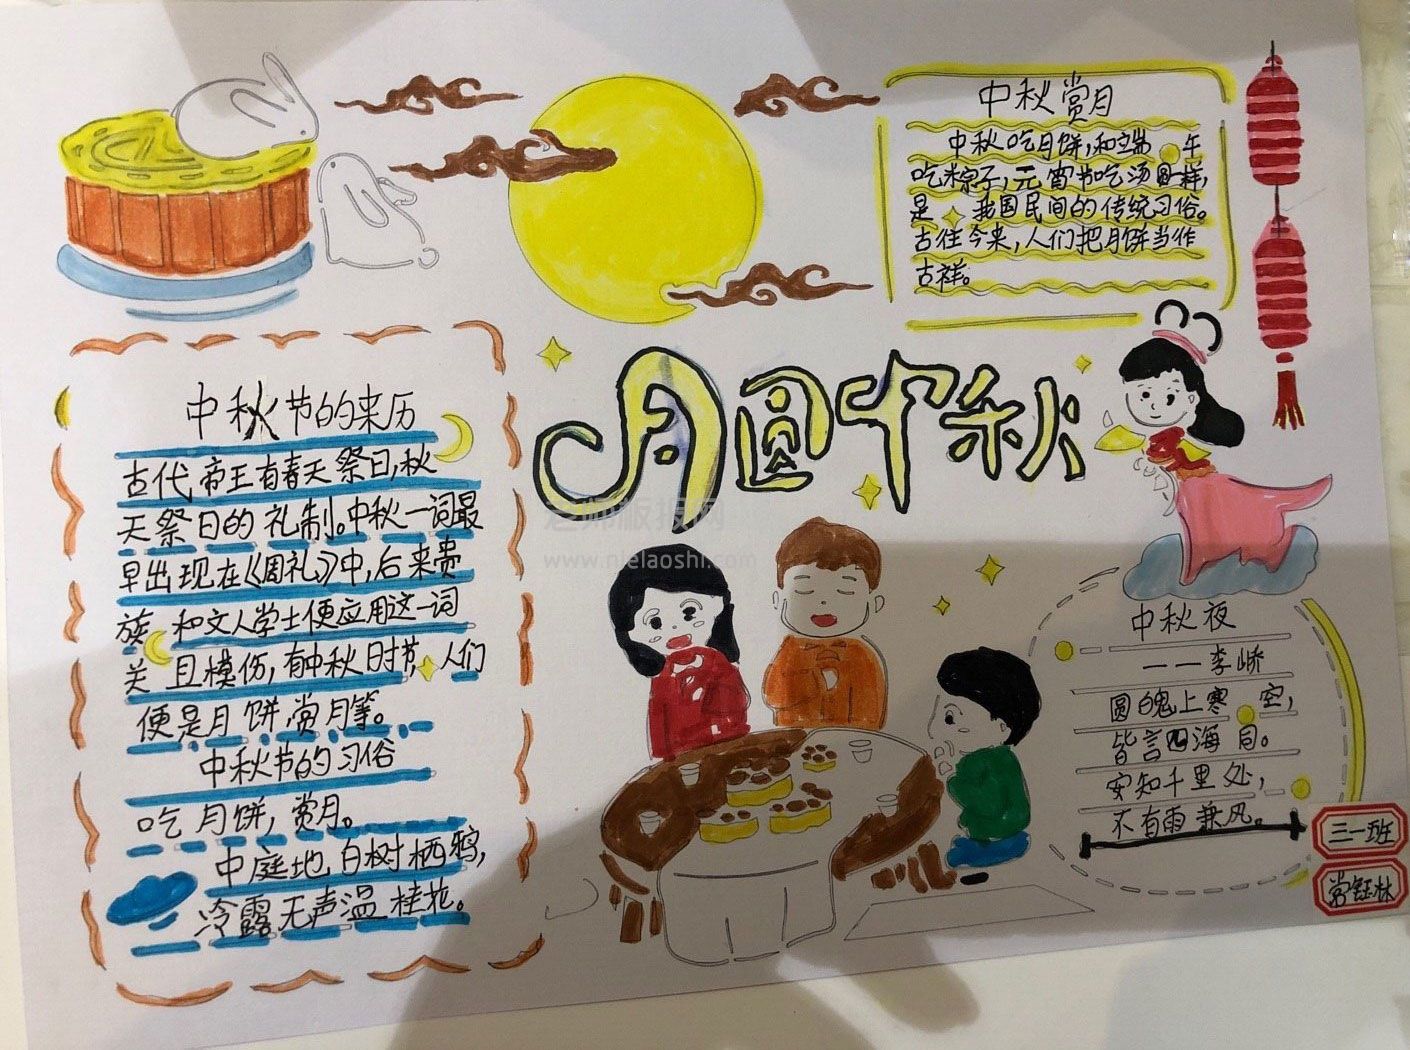 中秋赏月
中秋吃月饼,和端午
吃粽子,元宵节吃汤圆一样,
是我国民间的传统习俗。
古往今来,人们把月饼当作
古祥。
月圆中秋
中秋节的来历
古代帝王有春天祭日,秋
天祭日的礼制。中秋一词最
早出现在《周礼》中,后来贵
族和文人学士便应用这一词
关且模仿,有中秋时节,人们
便是月饼赏月等。
中秋节的习俗
吃月饼,赏月。
中庭地白树栖鸦,
冷露无声温桂花。
中秋夜
——李峤
圆魄上寒空,
皆言四海同。
安知千里处,
不有雨兼风。
三一班
常钰林
老师板报网
www.nielaoshi.com